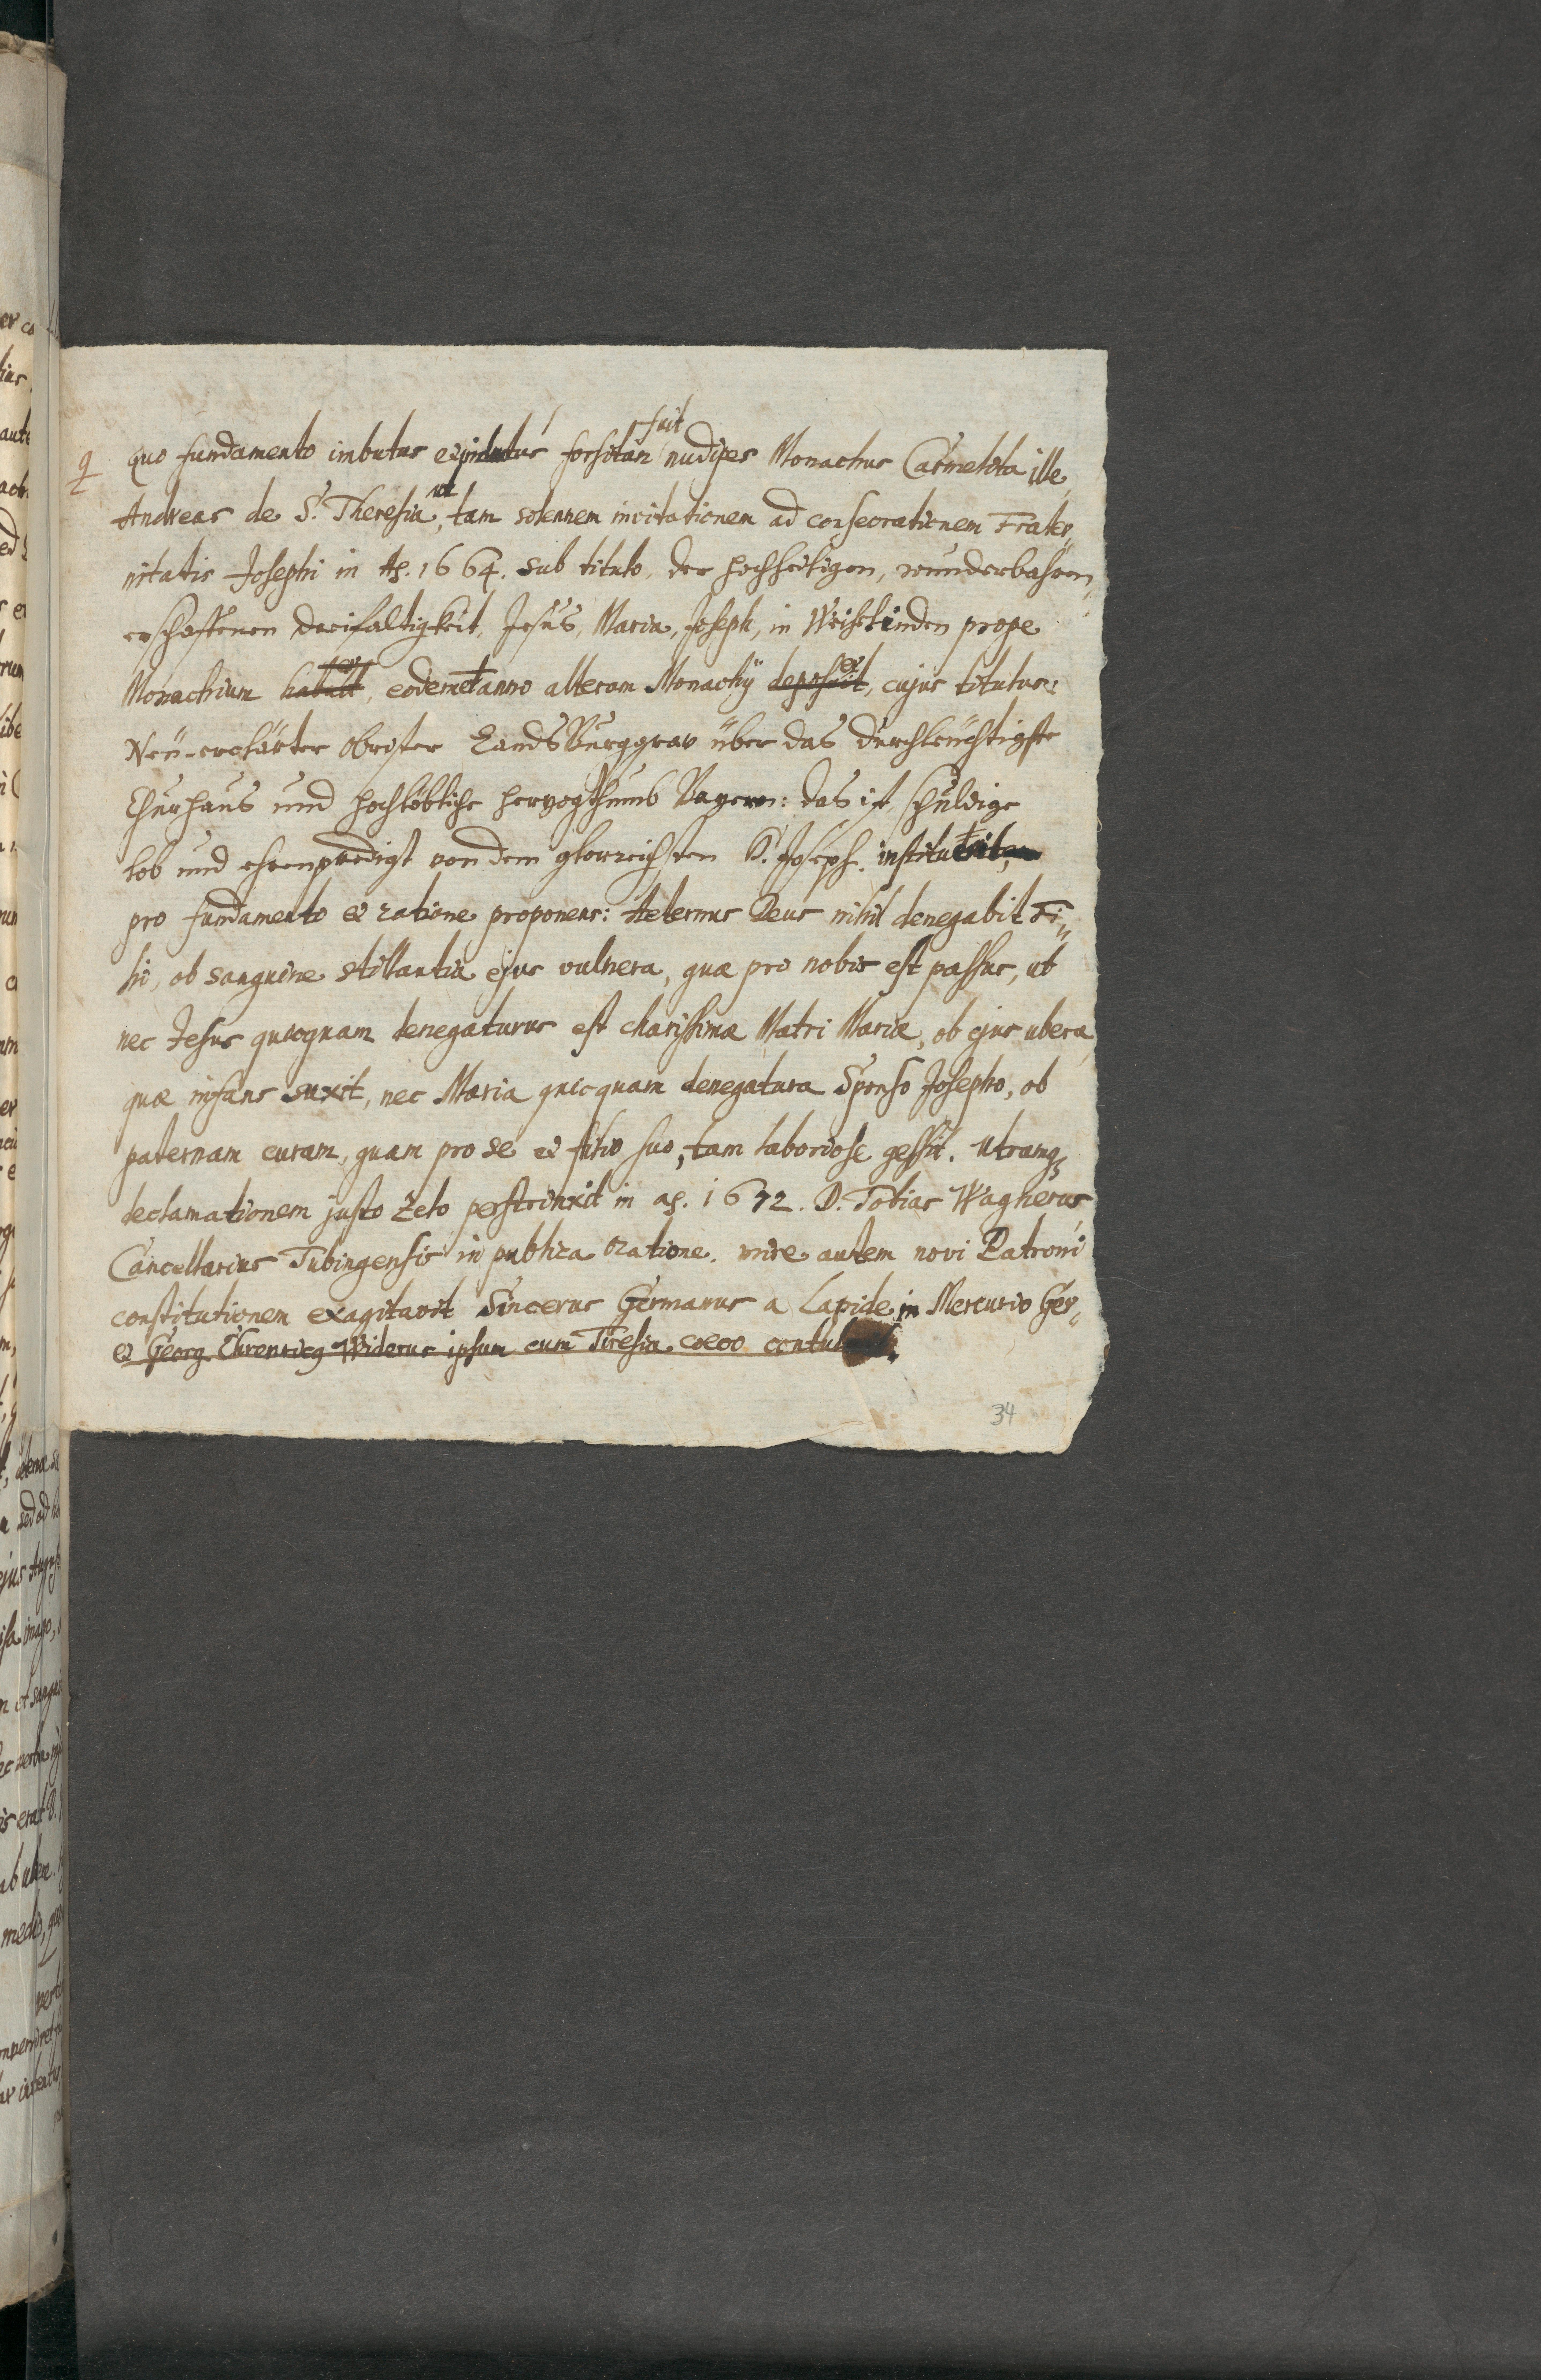 quo fundamento imbutus forsitan fuit nudipes Monachus Carmelita ille,
Andreas de S. Theresia, ut tam solennem invitationem ad consecrationem Frater„
nitatis Josephi in Aō. 1664. sub titulo, der hochheiligen, wunderbahren,
erschaffenen Dreifaltigkeit, Jesus, Maria, Joseph, in Weihelinden prope
Monachium habuit, eodemet anno alteram Monachij deposuit, cujus titulus:
Neü-erclärter obrister Lands Burggrav über das durchleüchtigste
Churhaus und hochlöbliche herzogthumb Bayern: das ist, schuldige
lob und ehrenpredigt von dem glorreichsten S. Joseph. instituit,
pro fundamento et ratione proponens: Aeternus Deus nihil denegabit Fi„
lii, ob sanguine stillantia ejus vulnera, quæ pro nobis est passus, ut
nec Jesus quicquam denegaturus est charissimæ Matri Mariæ, ob ejus ubera,
quæ infans suxit, nec Maria quicquam denegatura Sponso Josepho, ob
paternam curam, quam pro se et filio suo, tam laboriose gessit. utramq3
declamationem justo zelo perstrinxit in aō. 1672. D. Tobias Wagnerus
Cancellarius Tubingensis in publica oratione. mire autem novi Patroni
constitutionem exagitavit Sincerus Germanus a Lapide in Mercurio Ger„
et Georg. Ehrenricg Widerus ipsum cum Tiresia coeco contulit.
34